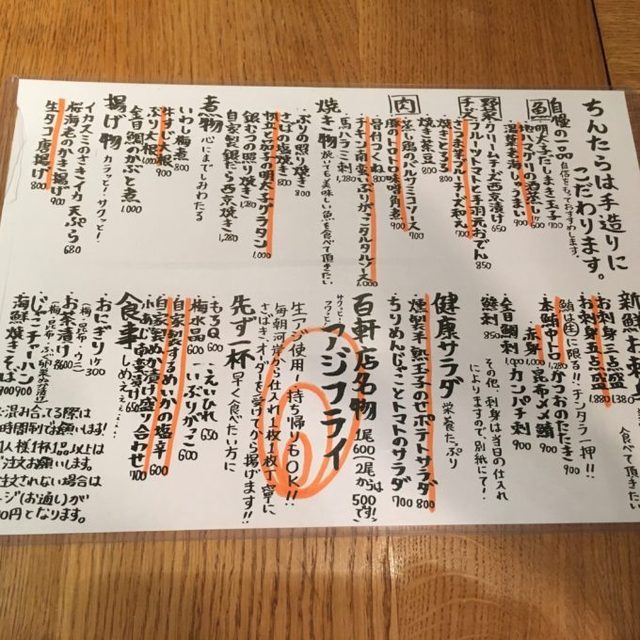 ちんたらは手造りに
こだわります。
自慢の一品
魚
明太だしまき玉子 900
地ハマグリの酒蒸し
温製 900
野菜
クリームチーズ西京漬け
フルーツトマトと手羽元おでん 850
チーズ
さつま芋ブルーチーズ和え 700
焼きとろろ 800
焼き茶豆 700
肉
蒸し鶏のバルサミコソース 700
豚のトロトロ味噌角煮 900
骨付つくね
チキン南蛮いぶりがっこタルタルソース 1,000
馬ハラミ刺 1,280
焼き物
焼いても美味しい魚を食べて頂きたい
ぶりの照り焼き
さばの塩焼き
帆立と茄子の明太子グラタン 1,000
銀むつの照り焼き 1,280
自家製銀むつ西京焼き 1,280
煮物
心にまでしみわたる
いわし梅煮 800
牛すじ大根 900
ぶり大根 1,000
金目鯛のかぶと煮 1,000
揚げ物
カラッと!サクッと!
イカスミのさきイカ天ぷら 680
桜海老のかき揚げ 900
生タコ唐揚げ 800
食べて頂きたい
お刺身三点盛 1,380
お刺身五点盛 1,880
鮪は生に限る!!チンタラ一押!!
本鮪中トロ 1,280
かつおのたたき 900
赤身 1,000
昆布〆鯖 900
金目鯛刺
カンパチ刺 900
鰹刺
その他、刺身は当日の仕入れ
によりますので、別紙にて!
健康サラダ
栄養たっぷり
燻製半熟玉子のせポテトサラダ 800
ちりめんじゃことトマトのサラダ 700
百軒店名物
1尾600(2尾からは
500円です)
サクッと〜フワッと〜
アジフライ
生アジ使用!持ち帰りもOK!!
毎朝河岸から仕入れ1枚1枚丁寧に
さばきオーダーを受けてから揚げます!!
先ず一杯
早く食べたい方に
もろQ 600
えいひれ 650
梅水晶 600
いぶりがっこ 600
自家製するめいかの塩辛 600
自家製ぬか漬け盛り合わせ 700
食事
しめぇぇぇ…
おにぎり 300
(梅、昆布、ウニ)
お茶漬け 600
じゃこチャーハン 900
海鮮焼きそば 900
混み合ってる際は
時間制でお願います!
個人様1杯1品以上は
ご注文お願いします。
注文されない場合は
ージ(お通し)が
0円となります。